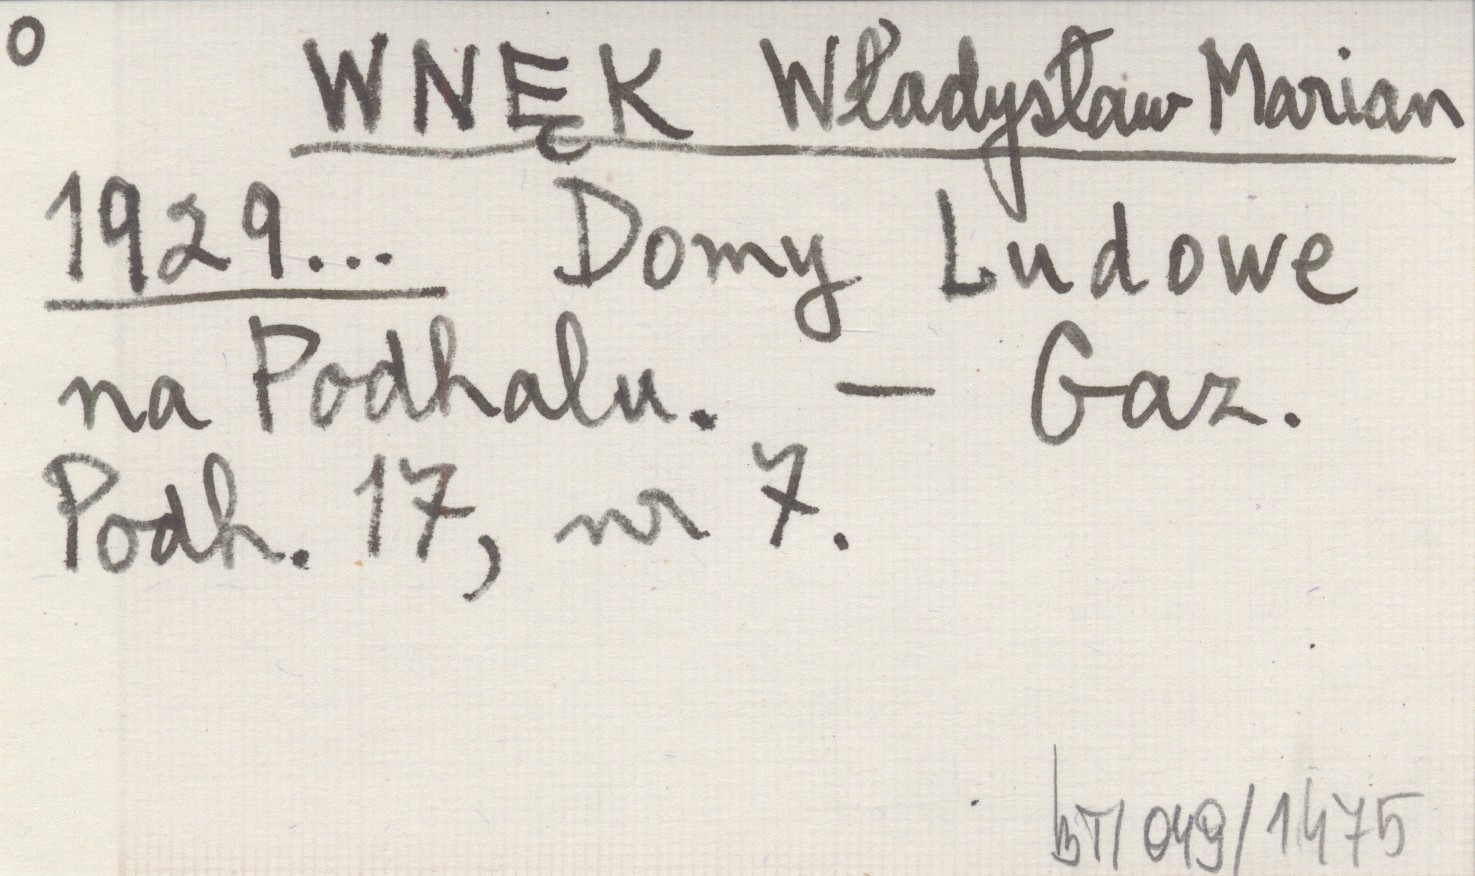 O
WNĘK Władysław Marian
1929... Domy Ludowe
na Podhalu. — Gaz.
Podh. 17, nr 7.
049/1475